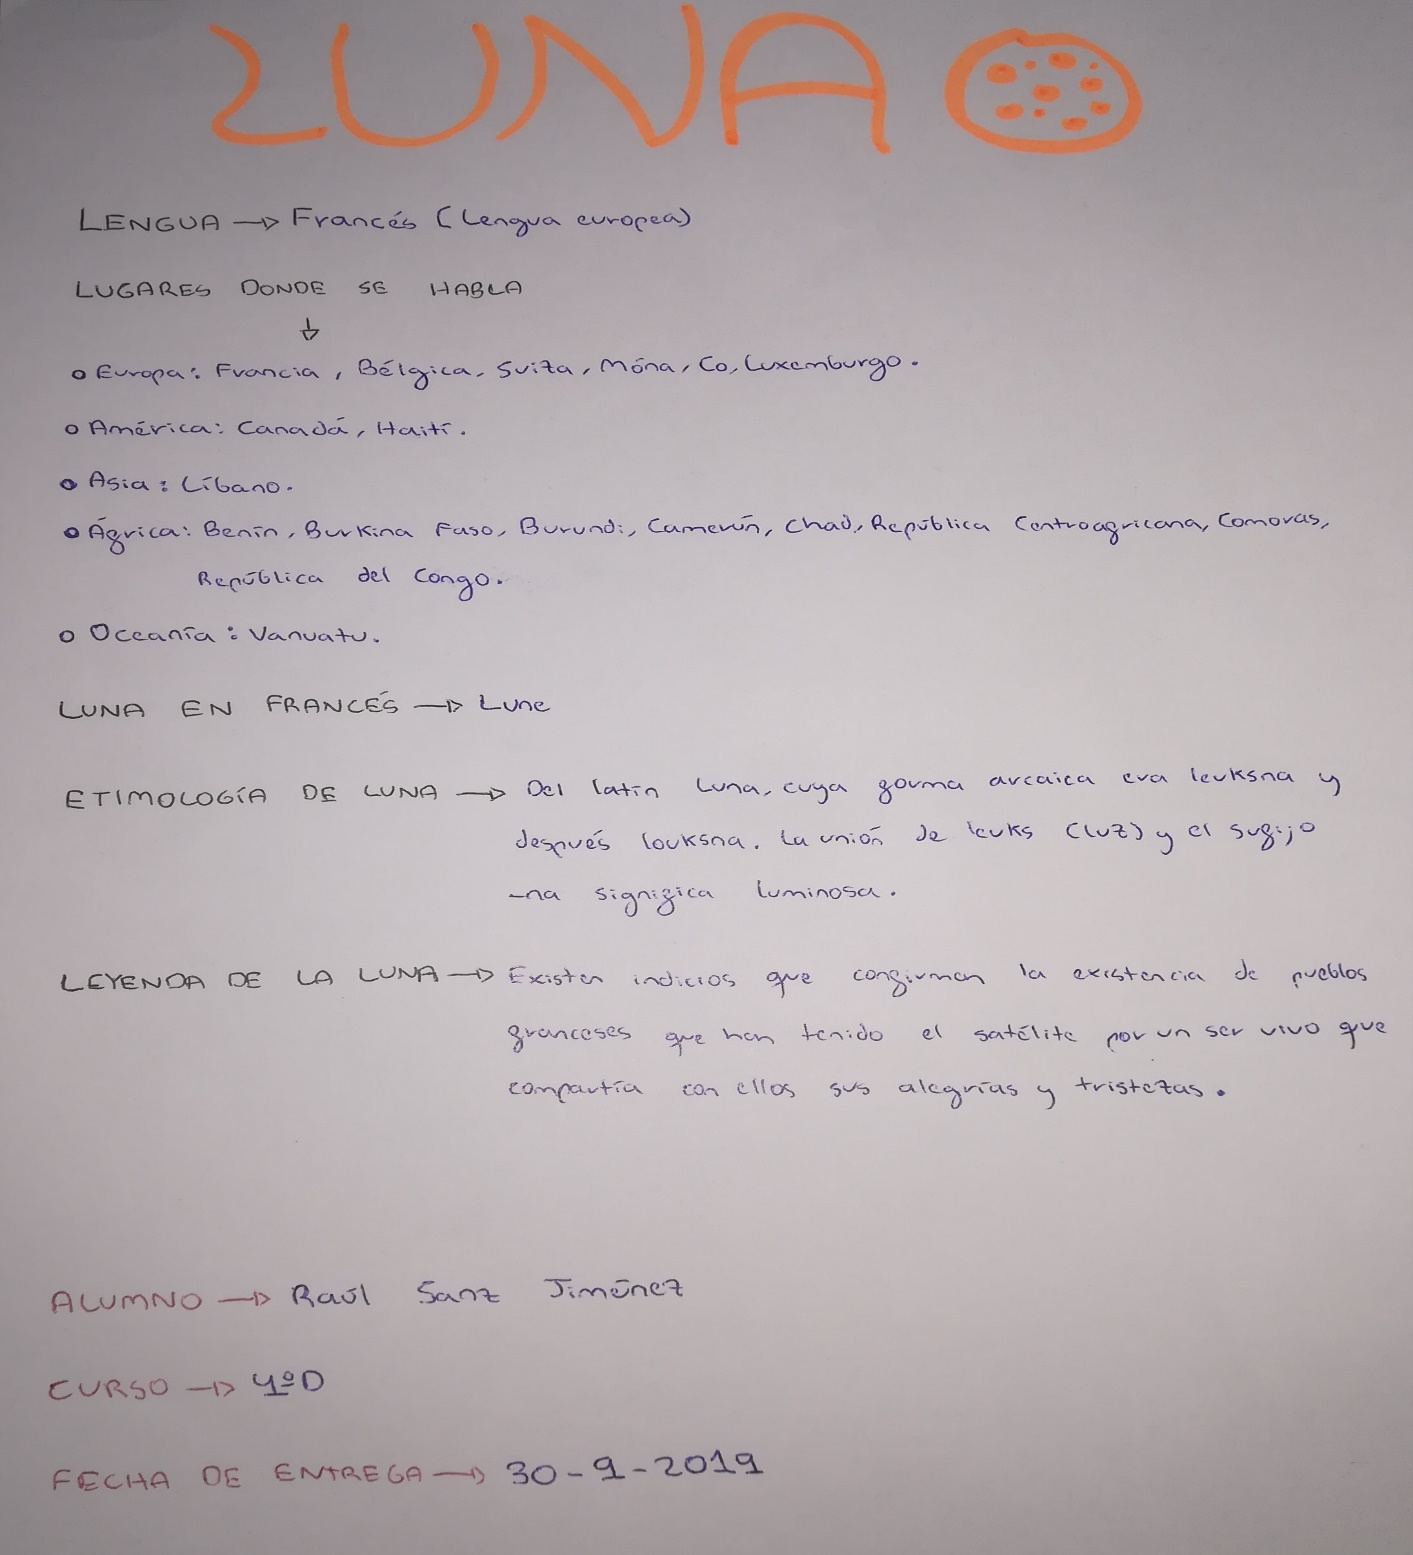 LUNA
LENGUA → Francés (Lengua europea)
LUGARES DONDE SE HABLA
↓
o Europa: Francia, Bélgica, Suiza, Móna, Co, Luxemburgo.
o América: Canadá, Haití.
o Asia: Líbano.
o África: Benín, Burkina Faso, Burundi, Camerún, Chad, República Centroafricana, Comoras,
República del Congo.
o Oceanía: Vanuatu.
LUNA EN FRANCÉS → Lune
ETIMOLOGÍA DE LUNA → Del latín Luna, cuya forma arcaica era leuksna y
después louksna. La unión de leuks (luz) y el sufijo
-na significa luminosa.
LEYENDA DE LA LUNA → Existen indicios que confirman la existencia de pueblos
franceses que han tenido el satélite por un ser vivo que
compartía con ellos sus alegrías y tristezas.
ALUMNO → Raúl Sanz Jiménez
CURSO → 4ºD
FECHA DE ENTREGA → 30-9-2019